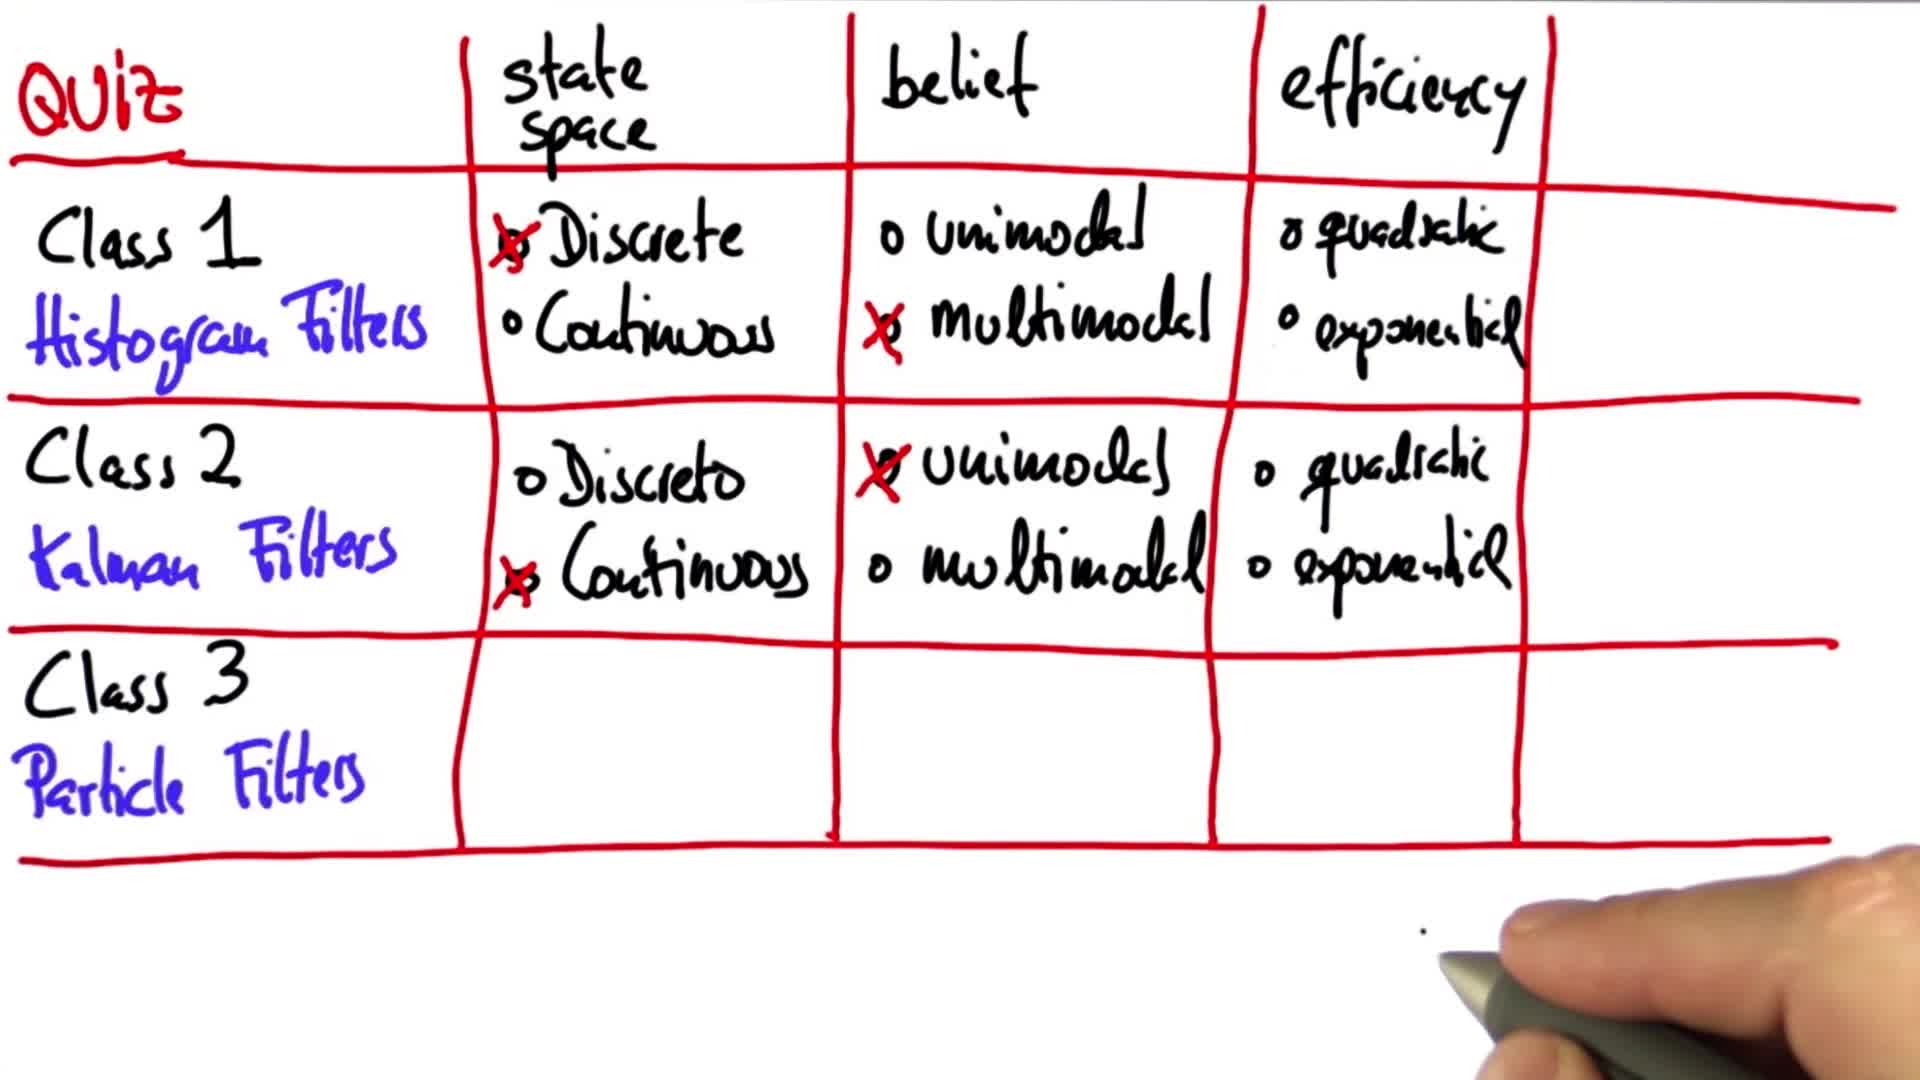 QUIZ
state
space
belief
efficiency
Class 1
Histogram Filters
Discrete
Continuous
unimodal
multimodal
quadratic
exponential
Class 2
Kalman Filters
Discrete
Continuous
unimodal
multimodal
quadratic
exponential
Class 3
Particle Filters